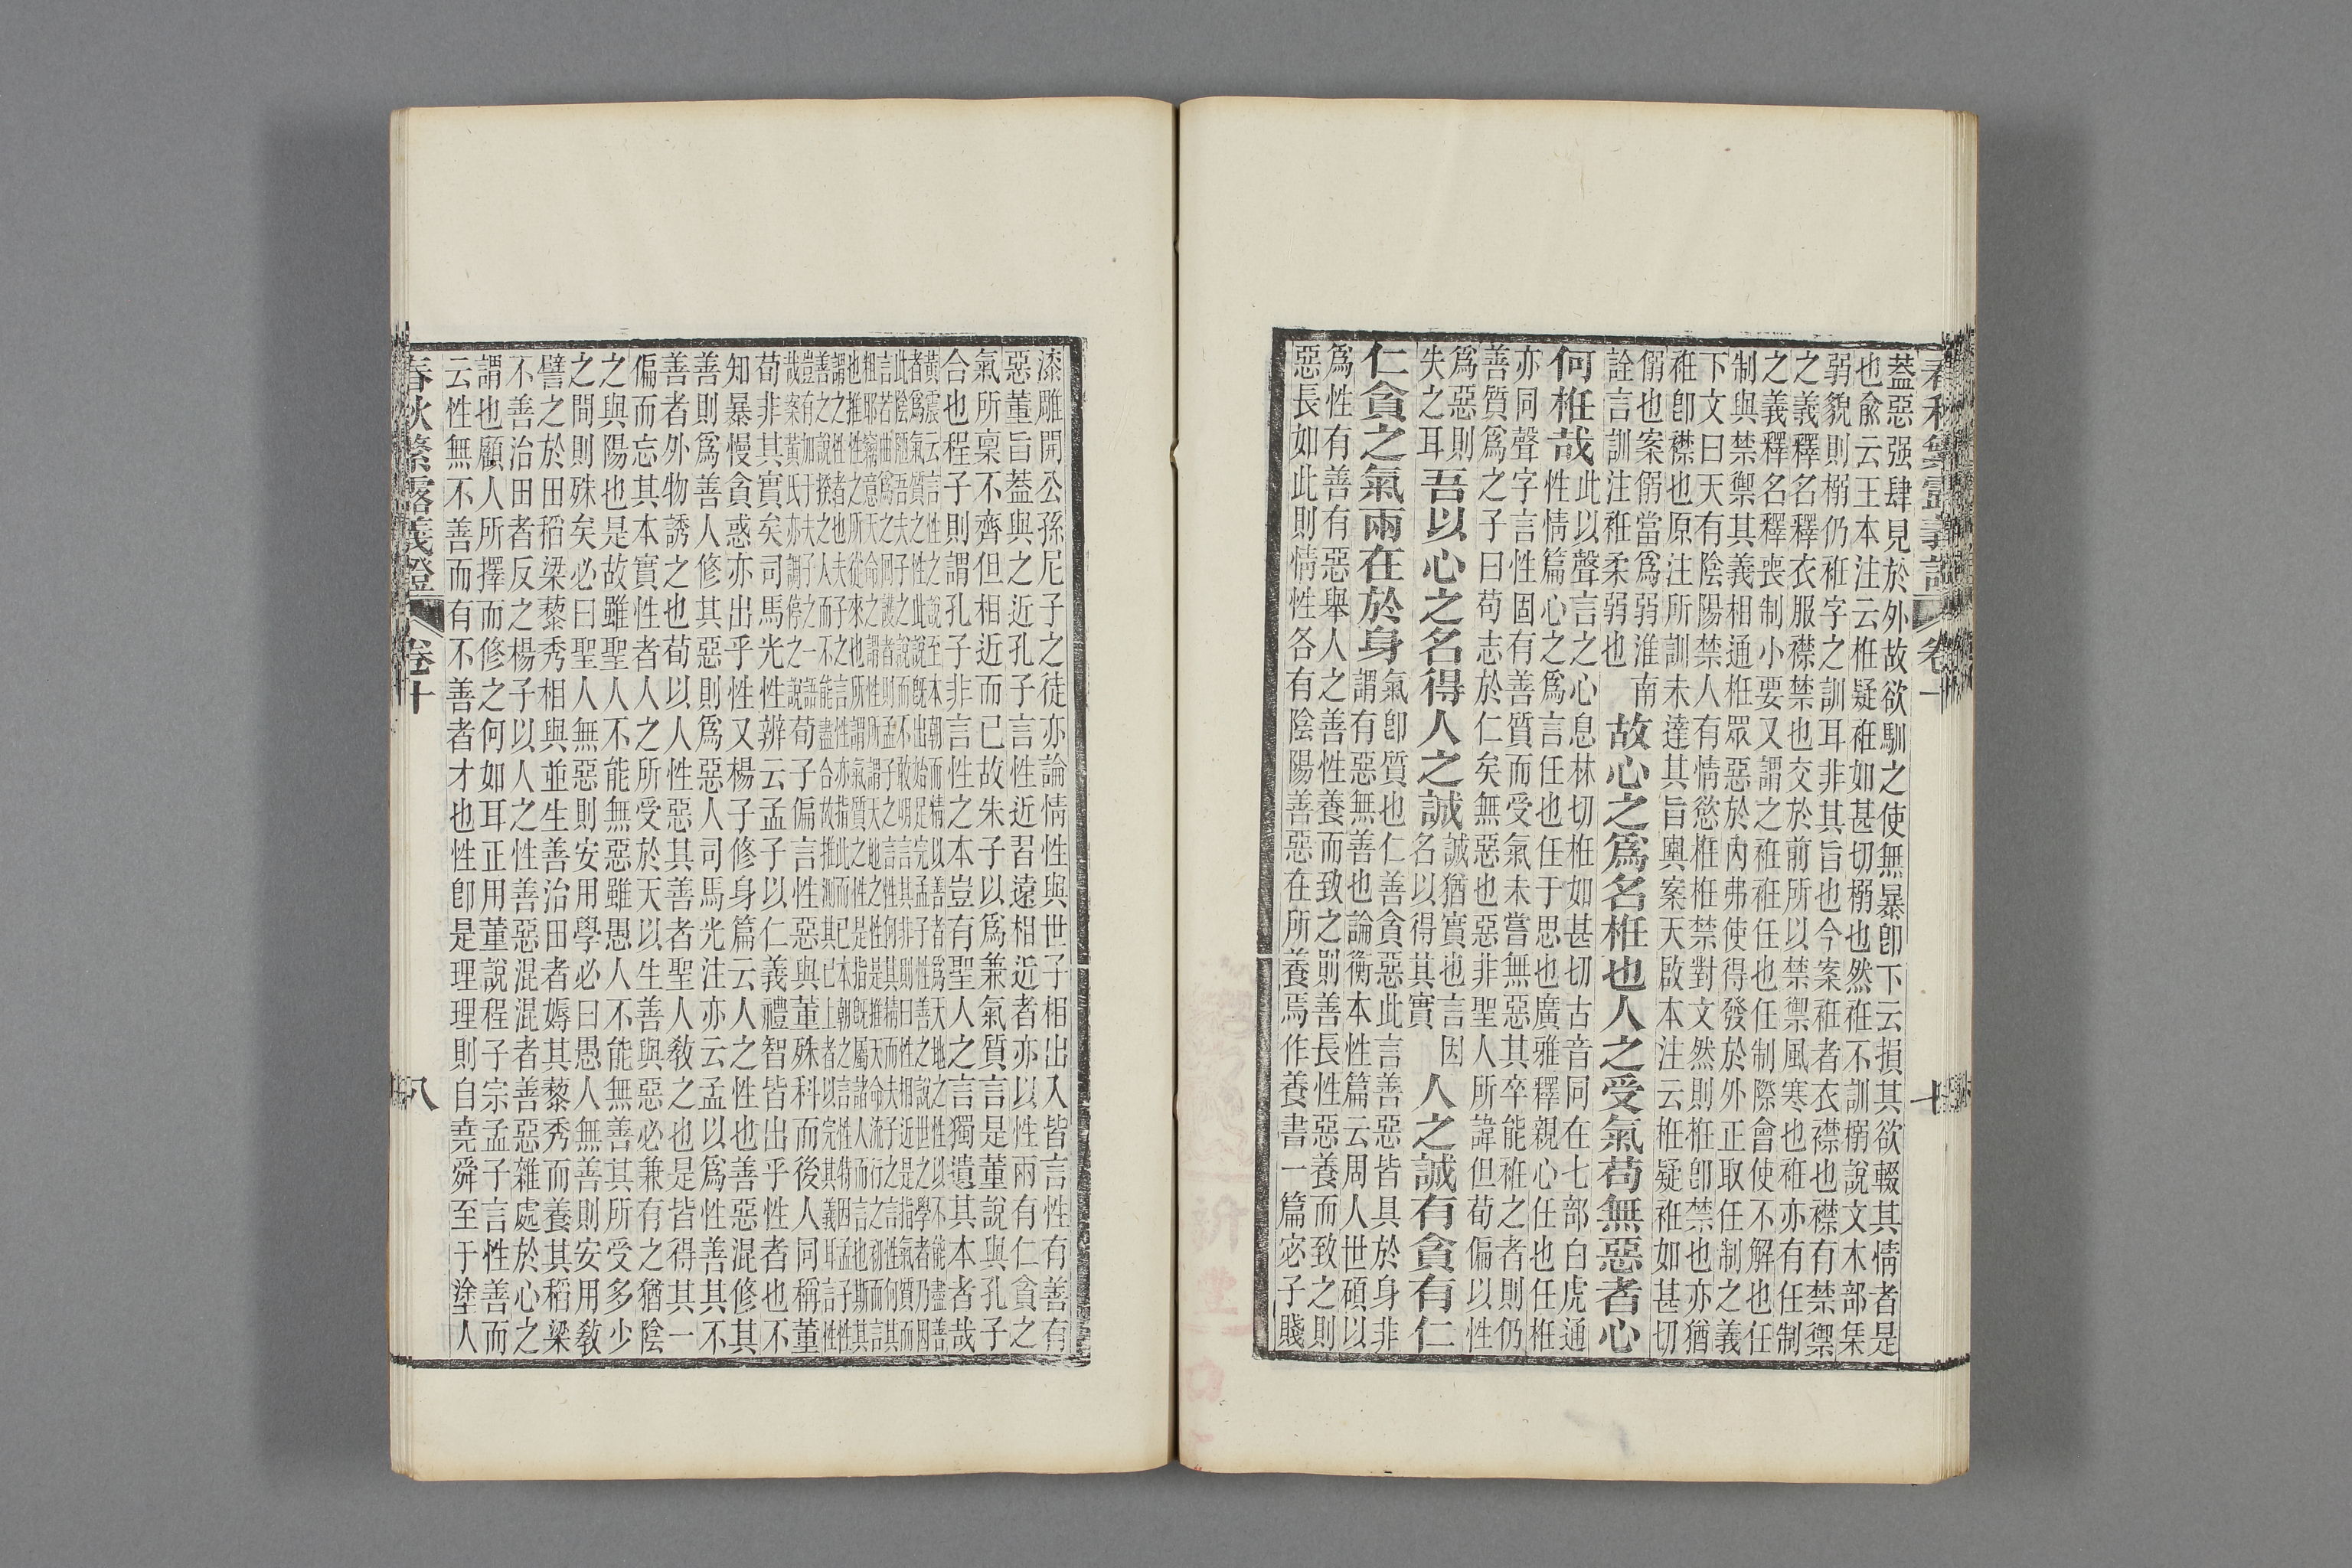 春秋繁露義證 卷十
葢惡强肆見於外故欲馴之使無暴卽下云損其欲輟其情者是
也兪云王本注云栣疑袵如甚切搦也然袵不訓搦說文木部栠
弱貌則搦仍袵字之訓耳非其旨也今案袵者衣襟也襟有禁禦
之義釋名釋衣服襟禁也交於前所以禁禦風寒也袵亦有任制
之義釋名釋喪制小要又謂之袵袵任也任制際會使不解也任
制與禁禦其義相通栣眾惡於內弗使得發於外正取任制之義
下文曰天有陰陽禁人有情慾栣栣禁對文然則栣卽禁也亦猶
袵卽襟也原注所訓未達其旨輿案天啟本注云栣疑袵如甚切
㑚也案㑚當爲弱淮南
詮言訓注袵柔弱也
故心之爲名栣也人之受氣苟無惡者心
何栣哉
此以聲言之心息林切栣如甚切古音同在七部白虎通
性情篇心之爲言任也任于思也廣雅釋親心任也任栣
亦同聲字言性固有善質而受氣未嘗無惡其卒能袵之者則仍
善質爲之子曰苟志於仁矣無惡也惡非聖人所諱但荀偏以性
爲惡則
失之耳
吾以心之名得人之誠
誠猶實也言因
名以得其實
人之誠有貪有仁
仁貪之氣兩在於身
氣卽質也仁善貪惡此言善惡皆具於身非
謂有惡無善也論衡本性篇云周人世碩以
爲性有善有惡舉人之善性養而致之則善長性惡養而致之則
惡長如此則情性各有陰陽善惡在所養焉作養書一篇宓子賤
漆雕開公孫尼子之徒亦論情性與世子相出入皆言性有善有
惡董旨葢與之近孔子言性近習遠相近者亦以性兩有仁貪之
氣所稟不齊但相近而已故朱子以爲兼氣質言是董說與孔子
合也程子則謂孔子非言性之本豈有聖人之言獨遺其本者哉
黃震云言性之說至本朝而情以善者爲天地之性以不能盡善
者爲氣質之性此說既出始足完孟子性善之說世之學者乃因
此陰陋吾夫子之說而不敢明言其非則曰性相近是指氣質而
言若曲爲回護者則孟子之言性何其精而夫子之言性何其
粗耶竊意天命之謂性所謂天地之性是推天命流行之初而言
也推性之所從來也所謂氣質之性是指既屬諸人而言也斯其
謂之性者也夫子之言性亦指此而已本朝之言性特因孟子性
善之說揆之人而不能盡合故推測其已上者以完其義耳言性
豈有加於夫子之一語
哉案黃氏亦調停之說
荀子偏言性惡與董殊科而後人同稱董
荀非其實矣司馬光性辨云孟子以仁義禮智皆出乎性者也不
知暴慢貪惑亦出乎性又楊子修身篇云人之性也善惡混修其
善則爲善人修其惡則爲惡人司馬光注亦云孟以爲性善其不
善者外物誘之也荀以人性惡其善者聖人敎之也是皆得其一
偏而忘其本實性者人之所受於天以生善與惡必兼有之猶陰
之與陽也是故雖聖人不能無惡雖愚人不能無善其所受多少
之間則殊矣必曰聖人無惡則安用學必曰愚人無善則安用敎
譬之於田稻粱藜秀相與並生善治田者媷其藜秀而養其稻粱
不善治田者反之楊子以人之性善惡混混者善惡雜處於心之
謂也顧人所擇而修之何如耳正用董說程子宗孟子言性善而
云性無不善而有不善者才也性卽是理理則自堯舜至于塗人
春秋繁露義證 卷十 八